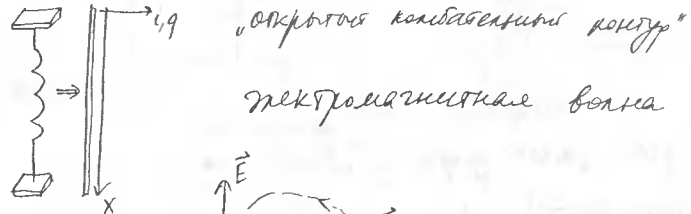 i,q
„открытый колебательный контур“
электромагнитная волна
E
x